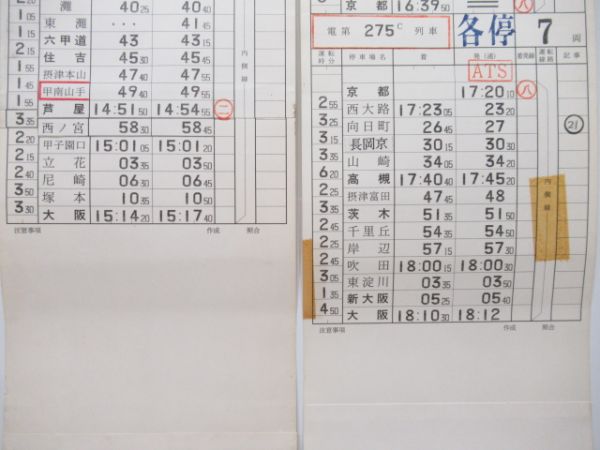 灘 40 25 40 40
1 05 東灘 ・・・ 41 15
2 15 六甲道 43 43 15
1 55 住吉 45 30 45 45
2 摂津本山 47 40 47 55
1 45 甲南山手 49 40 49 55
1 55 芦屋 14:51 50 14:54 55 二
3 35 西ノ宮 58 30 58 45
2 20 甲子園口 15:01 05 15:01 20
2 15 立花 03 35 03 50
2 55 尼崎 06 30 06 45
3 20 塚本 10 35 10 50
3 30 大阪 15:14 20 15:17 40
内側線
注意事項 作成 照合
京都 16:39 50 八
電第 275C 列車 各停 7 両
運転時分 停車場名 着 発(通) 着発線 運転線路 記事
ATS
京都 17:20 10 八
2 55 西大路 17:23 05 23 20
3 25 向日町 26 45 27 21
3 15 長岡京 30 15 30 30
3 35 山崎 34 05 34 20
6 20 高槻 17:40 40 17:45 20
2 25 摂津富田 47 45 48
3 35 茨木 51 35 51 50
2 45 千里丘 54 35 54 50
2 25 岸辺 57 15 57 30
2 45 吹田 18:00 15 18:00 30
3 05 東淀川 03 35 03 50
1 35 新大阪 05 25 05 40
4 50 大阪 18:10 30 18:12
内側線
注意事項 作成 照合